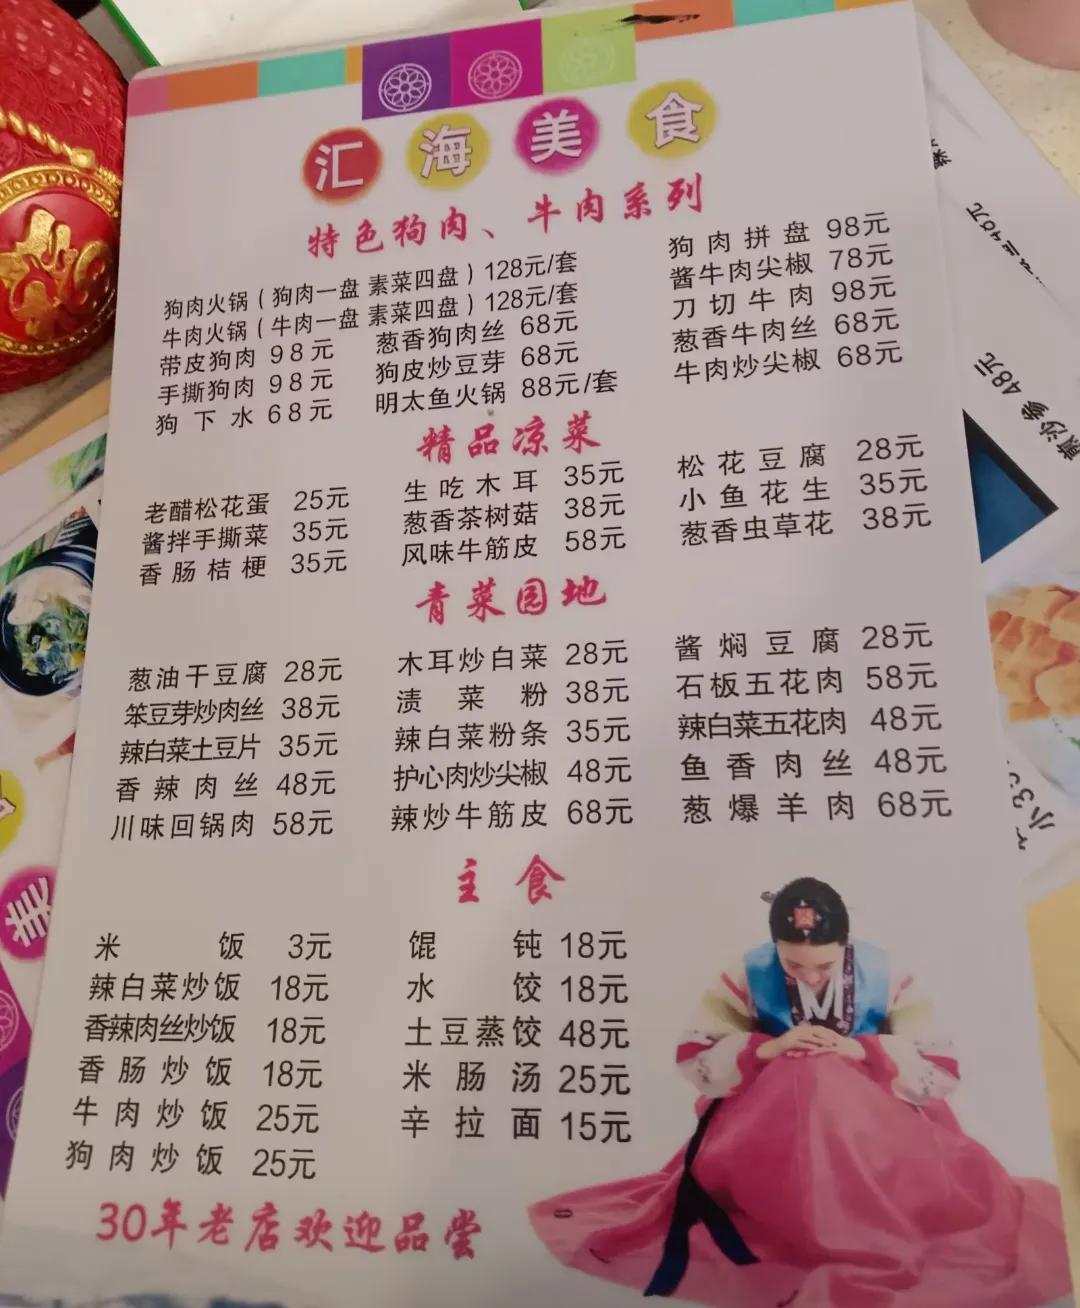 汇海美食
特色狗肉、牛肉系列
狗肉火锅（狗肉一盘 素菜四盘）128元/套
牛肉火锅（牛肉一盘 素菜四盘）128元/套
带皮狗肉 98元 葱香狗肉丝 68元
手撕狗肉 98元 狗皮炒豆芽 68元
狗下水 68元 明太鱼火锅 88元/套
狗肉拼盘 98元
酱牛肉尖椒 78元
刀切牛肉 98元
葱香牛肉丝 68元
牛肉炒尖椒 68元
精品凉菜
老醋松花蛋 25元 生吃木耳 35元 松花豆腐 28元
酱拌手撕菜 35元 葱香茶树菇 38元 小鱼花生 35元
香肠桔梗 35元 风味牛筋皮 58元 葱香虫草花 38元
青菜园地
葱油干豆腐 28元 木耳炒白菜 28元 酱焖豆腐 28元
笨豆芽炒肉丝 38元 渍菜粉 38元 石板五花肉 58元
辣白菜土豆片 35元 辣白菜粉条 35元 辣白菜五花肉 48元
香辣肉丝 48元 护心肉炒尖椒 48元 鱼香肉丝 48元
川味回锅肉 58元 辣炒牛筋皮 68元 葱爆羊肉 68元
主食
米饭 3元 馄饨 18元
辣白菜炒饭 18元 水饺 18元
香辣肉丝炒饭 18元 土豆蒸饺 48元
香肠炒饭 18元 米肠汤 25元
牛肉炒饭 25元 辛拉面 15元
狗肉炒饭 25元
30年老店欢迎品尝
美
48元
小